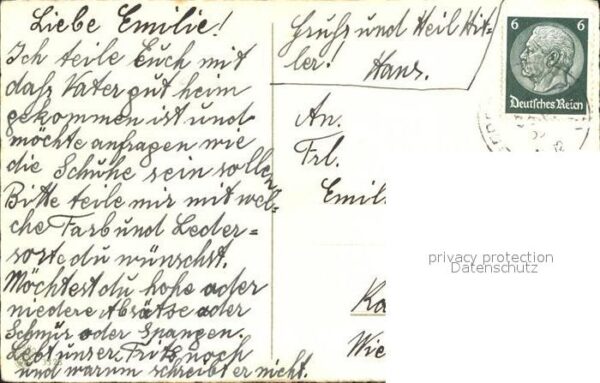 Liebe Emilie!
Ich teile Euch mit
daß Vater gut heim
gekommen ist und
möchte anfragen wie
die Schuhe sein sollen
Bitte teile mir mit wel-
che Farb und Leder=
sorte du wünschst.
Möchtest du hohe oder
niedere Absätse oder
Schnür oder Spangen.
Lebt unser Fritz noch
und warum schreibt er nicht.
Gruß und Heil Hit-
ler!
Hans.
6 6
Deutsches Reich
An.
Frl.
Emil
privacy protection
Datenschutz
Ka
Wie